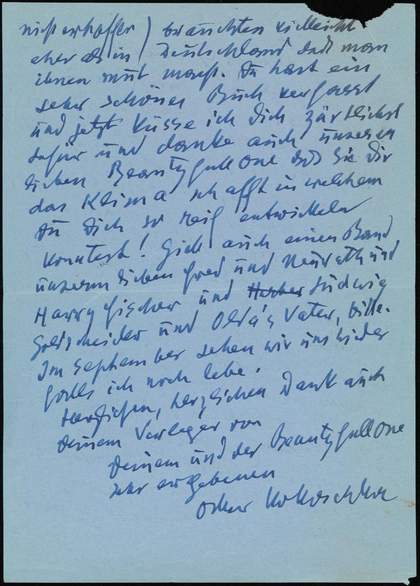 nicht erhoffen) brauchten vielleicht
eher als in Deutschland daß man
ihnen mut macht. Du hast ein
sehr schönes Buch verfasst
und jetzt küsse ich Dich zärtlichst
dafür und danke auch unserer
lieben Beautyfull One daß sie Dir
das Klima schafft in welchem
Du Dich so reif entwickeln
konntest! Gieb auch einen Band
unserm lieben Fred und Neurath und
Harry Fischer und Ludwig
Goldscheider und Olda's Vater, bitte.
Im September sehen wir uns wieder
falls ich noch lebe!
Herzlichen, herzlichen Dank auch
Deinem Verleger von
Deinem und der Beautyfull One
sehr ergebenen
Oskar Kokoschka